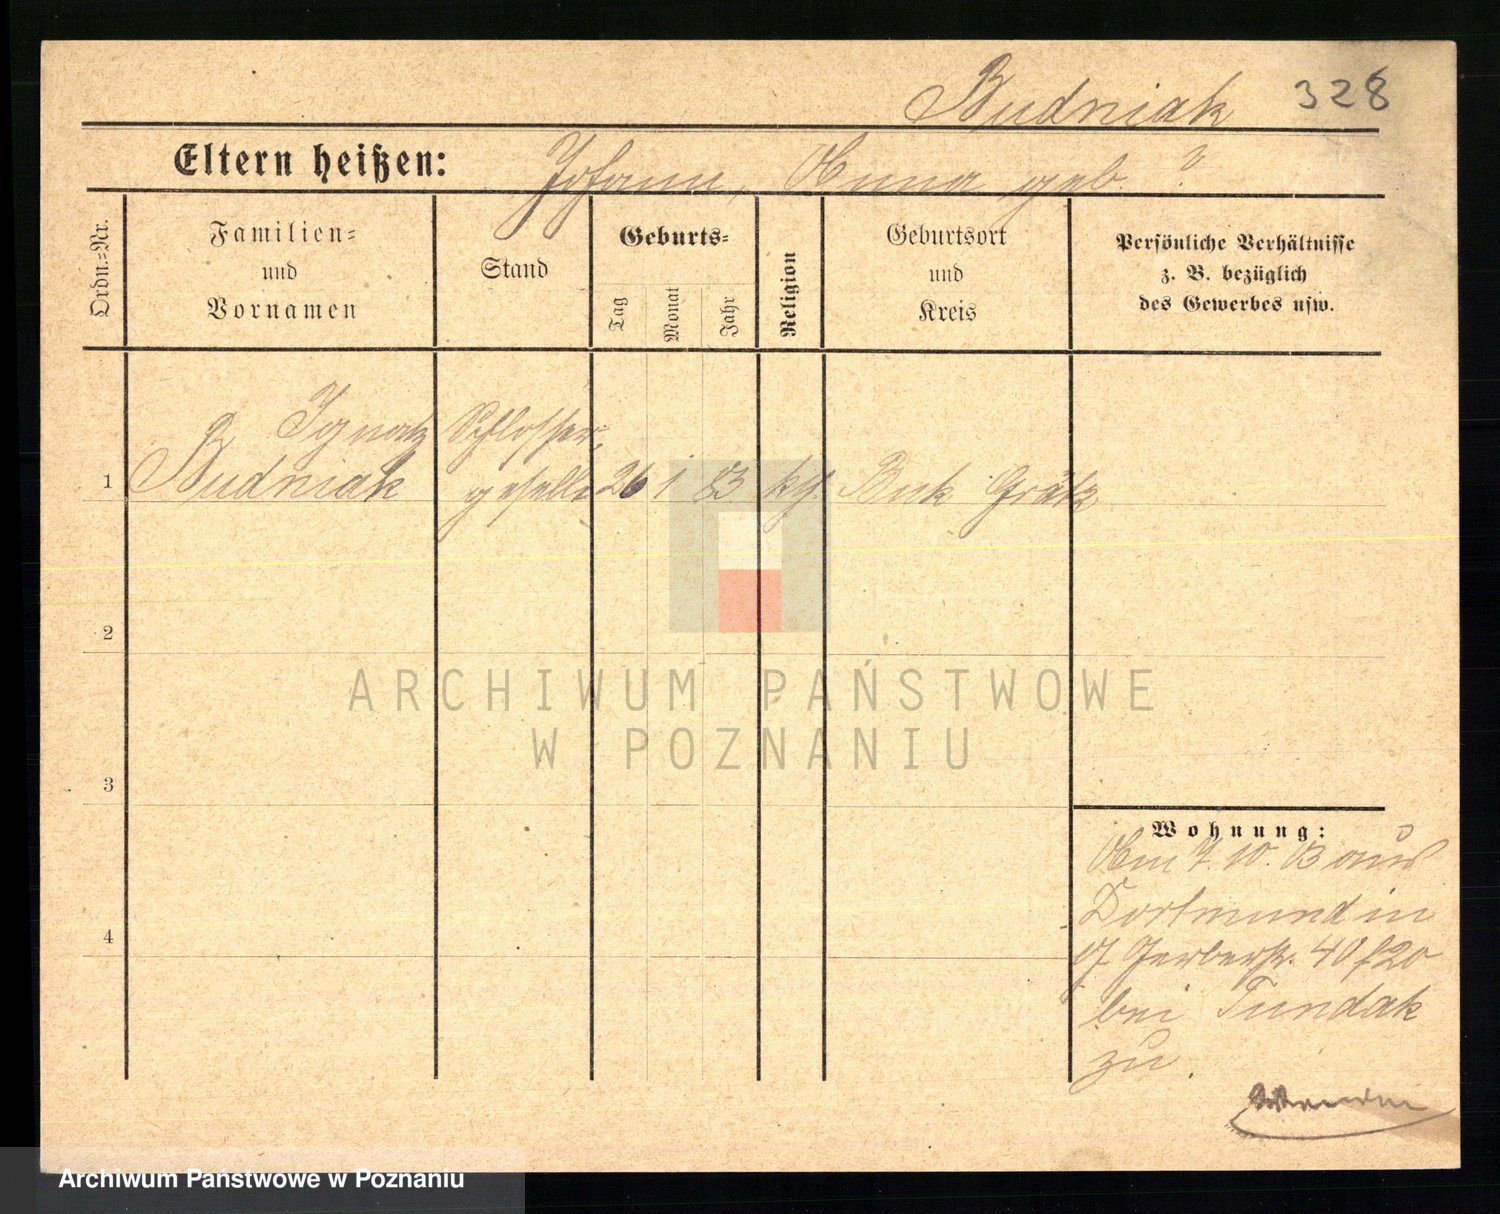 Budniak 328
Eltern heißen: Johann, Anna geb. ?
Ordn.-Nr.
Familien-
und
Vornamen
Stand
Geburts-
Tag
Monat
Jahr
Religion
Geburtsort
und
Kreis
Persönliche Verhältnisse
z. B. bezüglich
des Gewerbes usw.
Ignatz Schlosser-
1 Budniak geselle 26 1 83 kth. Buk Grätz
2
ARCHIWUM PAŃSTWOWE
W POZNANIU
3
Wohnung:
Am 7. 10. 03 aus
Dortmund in
4
Gerberstr. 40
bei Tundak
zu.
Archiwum Państwowe w Poznaniu